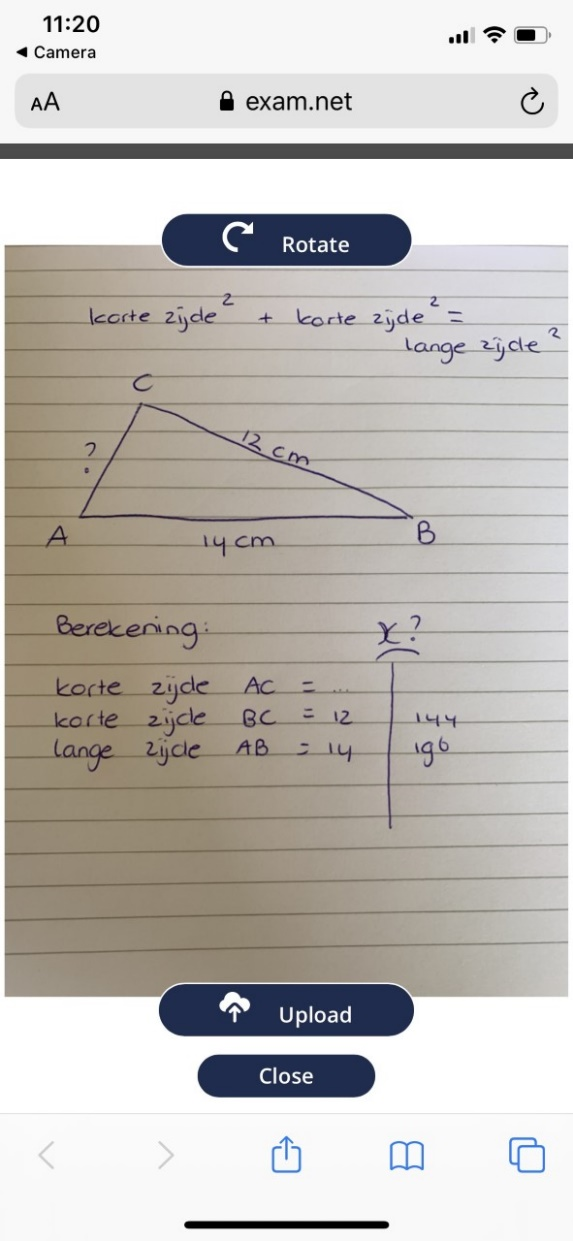 11:20
◀ Camera
AA
exam.net
Rotate
korte zijde² + korte zijde² =
lange zijde²
C
?
12 cm
A
14 cm
B
Berekening:
x?
korte zijde AC = ...
korte zijde BC = 12 144
lange zijde AB = 14 196
Upload
Close